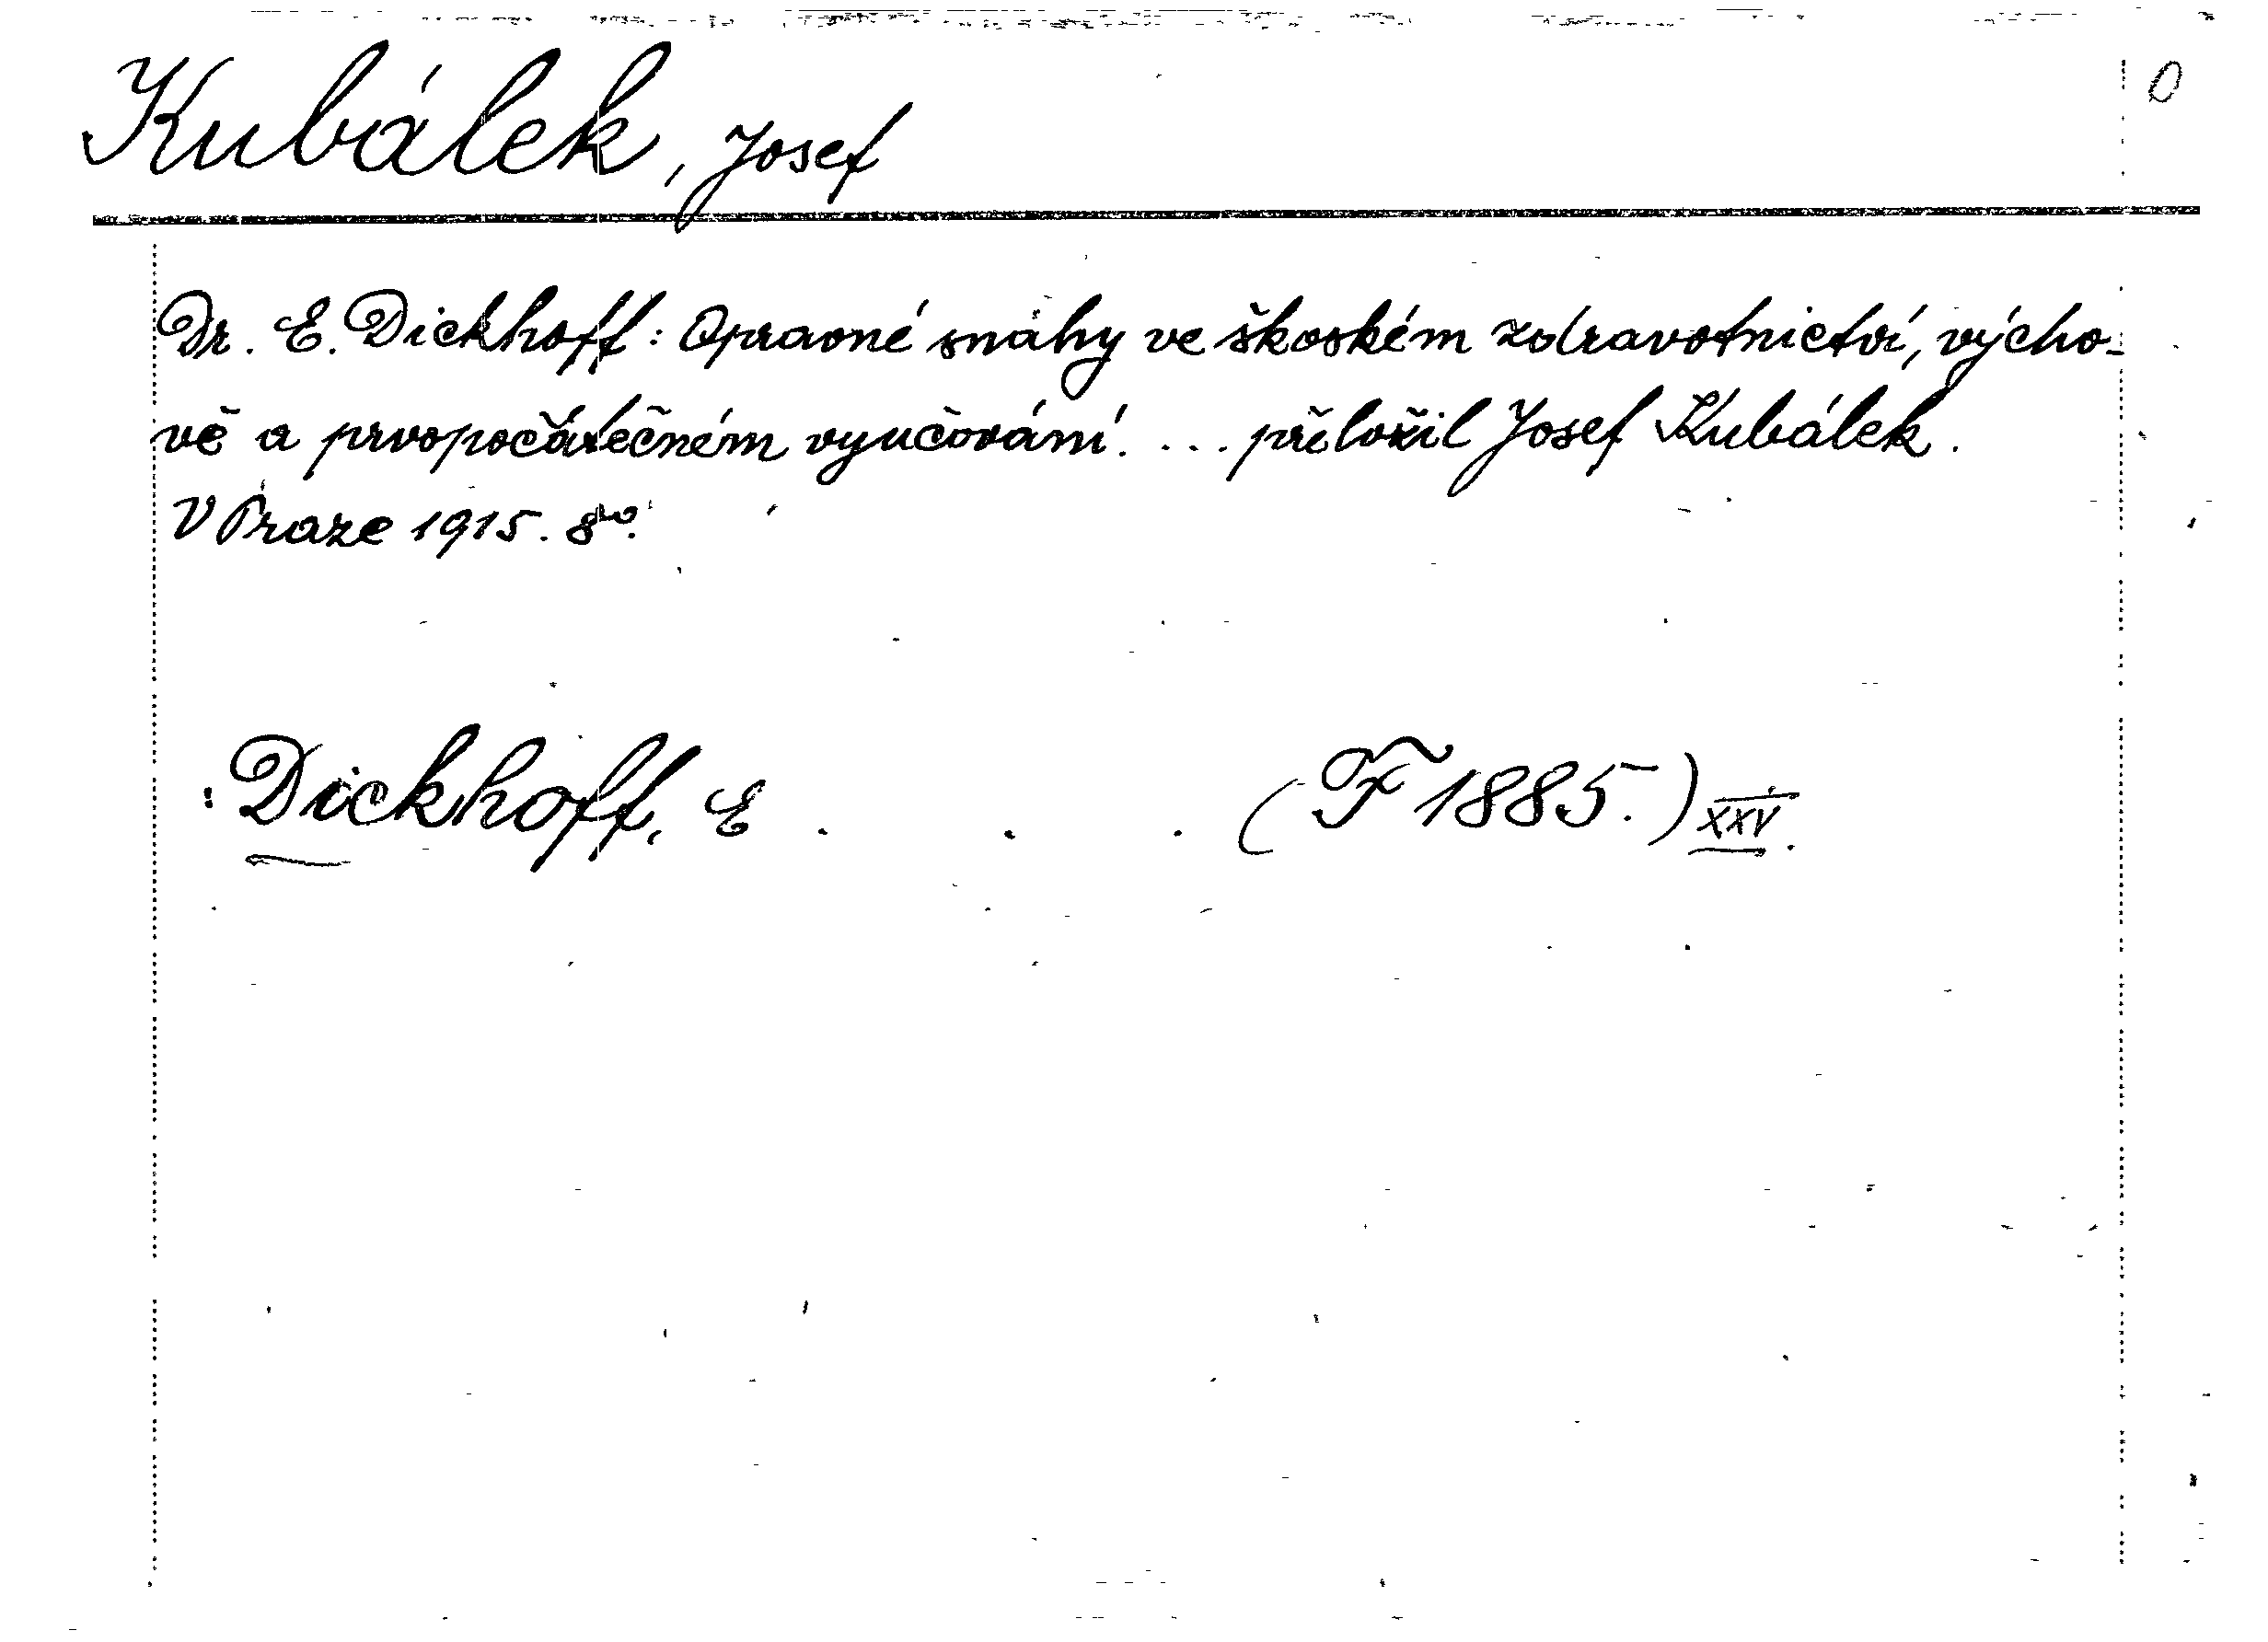 Kubálek, Josef
0
Dr. E. Dickhoff: Opravné snahy ve školském zdravotnictví, výcho-
vě a prvopočátečném vyučování. ... přeložil Josef Kubálek.
V Praze 1915. 8vo.
Dickhoff, E . . . (F 1885.) XXV.